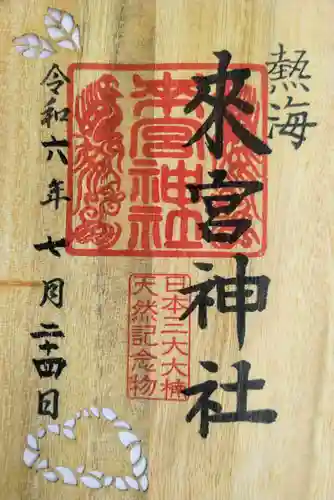 熱海
來宮神社
來宮神社
日本三大大楠
天然記念物
令和六年七月二十四日